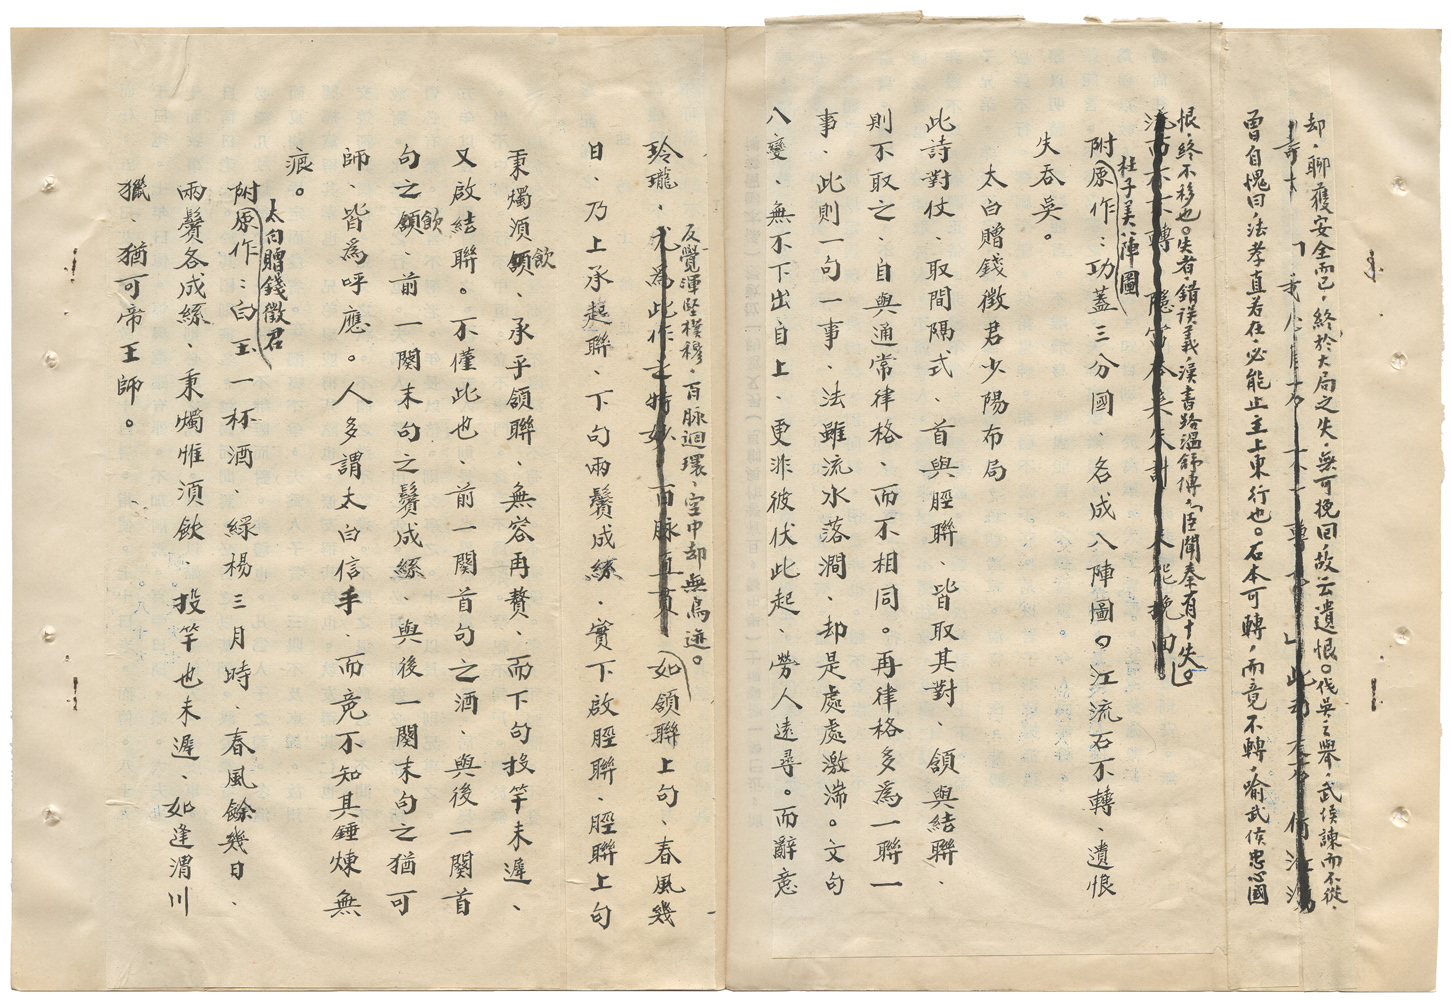 却、聊獲安全而已、終於大局之失、無可挽回、故云遺恨。伐吳之舉、武侯諫而不從、
曾自愧曰、法孝直若在、必能止主上東行也。石本可轉、而竟不轉、喻武侯忠心國
恨、終不移也。失者、錯誤義、漢書路溫舒傳、「臣聞秦有十失。」
杜子美八陣圖
附原作：功蓋三分國、名成八陣圖。江流石不轉、遺恨
失吞吳。
太白贈錢徵君少陽布局
此詩對仗、取間隔式、首與脛聯、皆取其對、頷與結聯、
則不取之、自與通常律格、而不相同。再律格多為一聯一
事、此則一句一事、法雖流水落澗、却是處處激湍。文句
八變、無不下出自上、更非彼伏此起、勞人遠尋。而辭意
反覺渾堅樸穆、百脉迴環、空中却無鳥迹。
玲瓏、如頷聯上句、春風幾
日、乃上承起聯、下句兩鬢成絲、實下啟脛聯、脛聯上句
秉燭須飲、承乎頷聯、無容再贅、而下句投竿未遲、
又啟結聯。不僅此也、前一闋首句之酒、與後一闋首
句之飲、前一闋末句之鬢成絲、與後一闋末句之猶可
師、皆為呼應。人多謂太白信手、而竟不知其錘煉無
痕。
太白贈錢徵君
附原作：白玉一杯酒、綠楊三月時、春風餘幾日、
兩鬢各成絲、秉燭惟須飲、投竿也未遲、如逢渭川
獵、猶可帝王師。